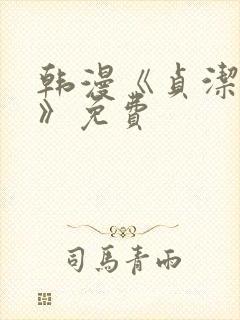 韩漫《贞潔
》免費
司馬青雨